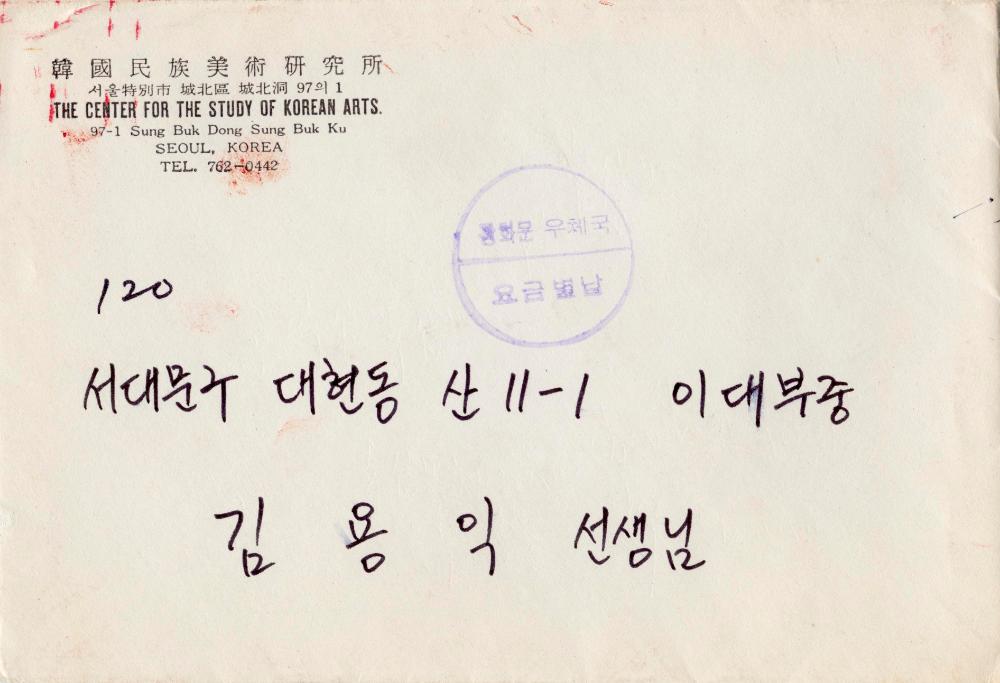 韓國民族美術硏究所
서울特別市 城北區 城北洞 97의 1
THE CENTER FOR THE STUDY OF KOREAN ARTS.
97-1 Sung Buk Dong Sung Buk Ku
SEOUL, KOREA
TEL. 762-0442
광화문 우체국
요금별납
120
서대문구 대현동 산 11-1 이대부중
김용익 선생님